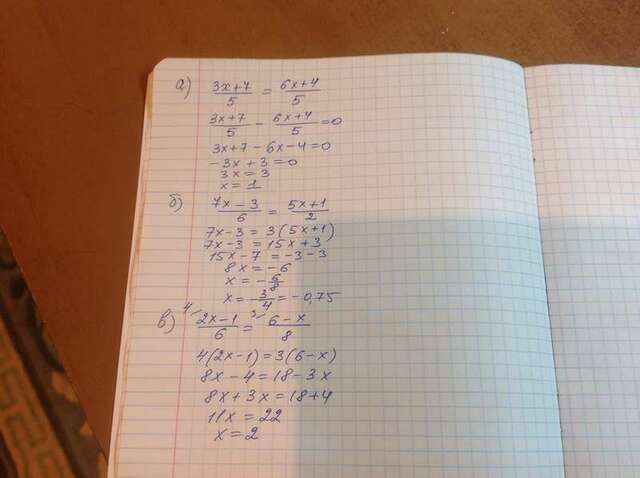 а) (3x+7)/5 = (6x+4)/5
(3x+7)/5 - (6x+4)/5 = 0
3x+7-6x-4=0
-3x+3=0
3x=3
x=1
б) (7x-3)/6 = (5x+1)/2
7x-3 = 3(5x+1)
7x-3 = 15x+3
15x-7 = -3-3
8x = -6
x = -6/8
x = -3/4 = -0,75
в) 4/ (2x-1)/6 = 3/ (6-x)/8
4(2x-1)=3(6-x)
8x-4=18-3x
8x+3x=18+4
11x=22
x=2